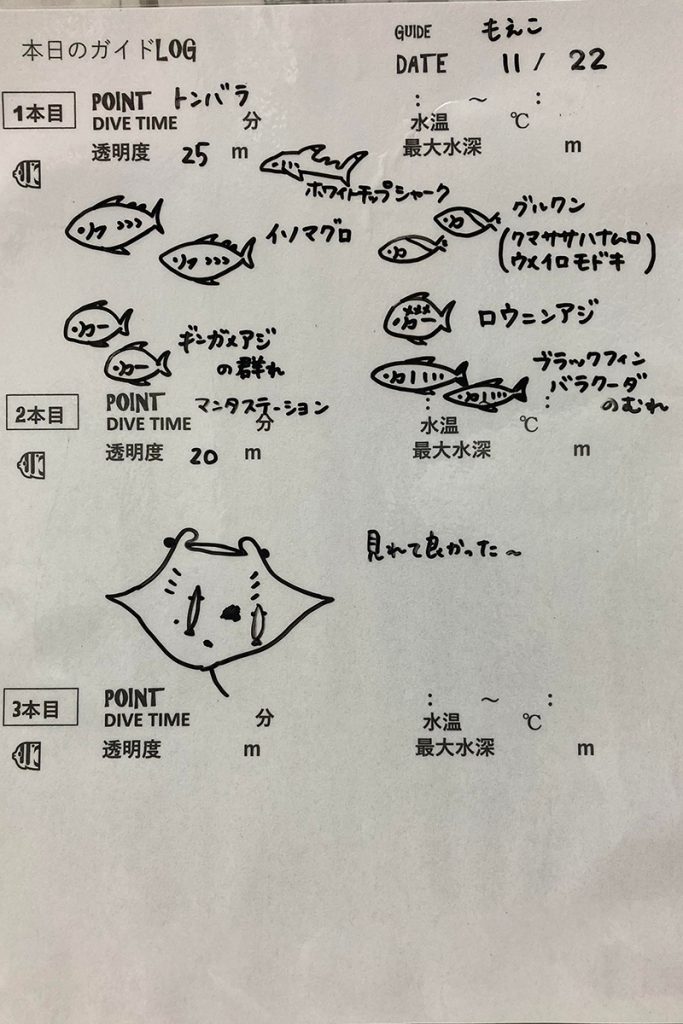 本日のガイドLOG
GUIDE もえこ
DATE 11 / 22
1本目 POINT トンバラ : ～ :
DIVE TIME 分 水温 ℃
透明度 25 m 最大水深 m
ホワイトチップシャーク
イソマグロ
グルクン
(クマササハナムロ
ウメイロモドキ)
ギンガメアジ
の群れ
ロウニンアジ
ブラックフィン
バラクーダ
のむれ
2本目 POINT マンタステーション : :
DIVE TIME 分 水温 ℃
透明度 20 m 最大水深 m
見れて良かった～
3本目 POINT : ～ :
DIVE TIME 分 水温 ℃
透明度 m 最大水深 m